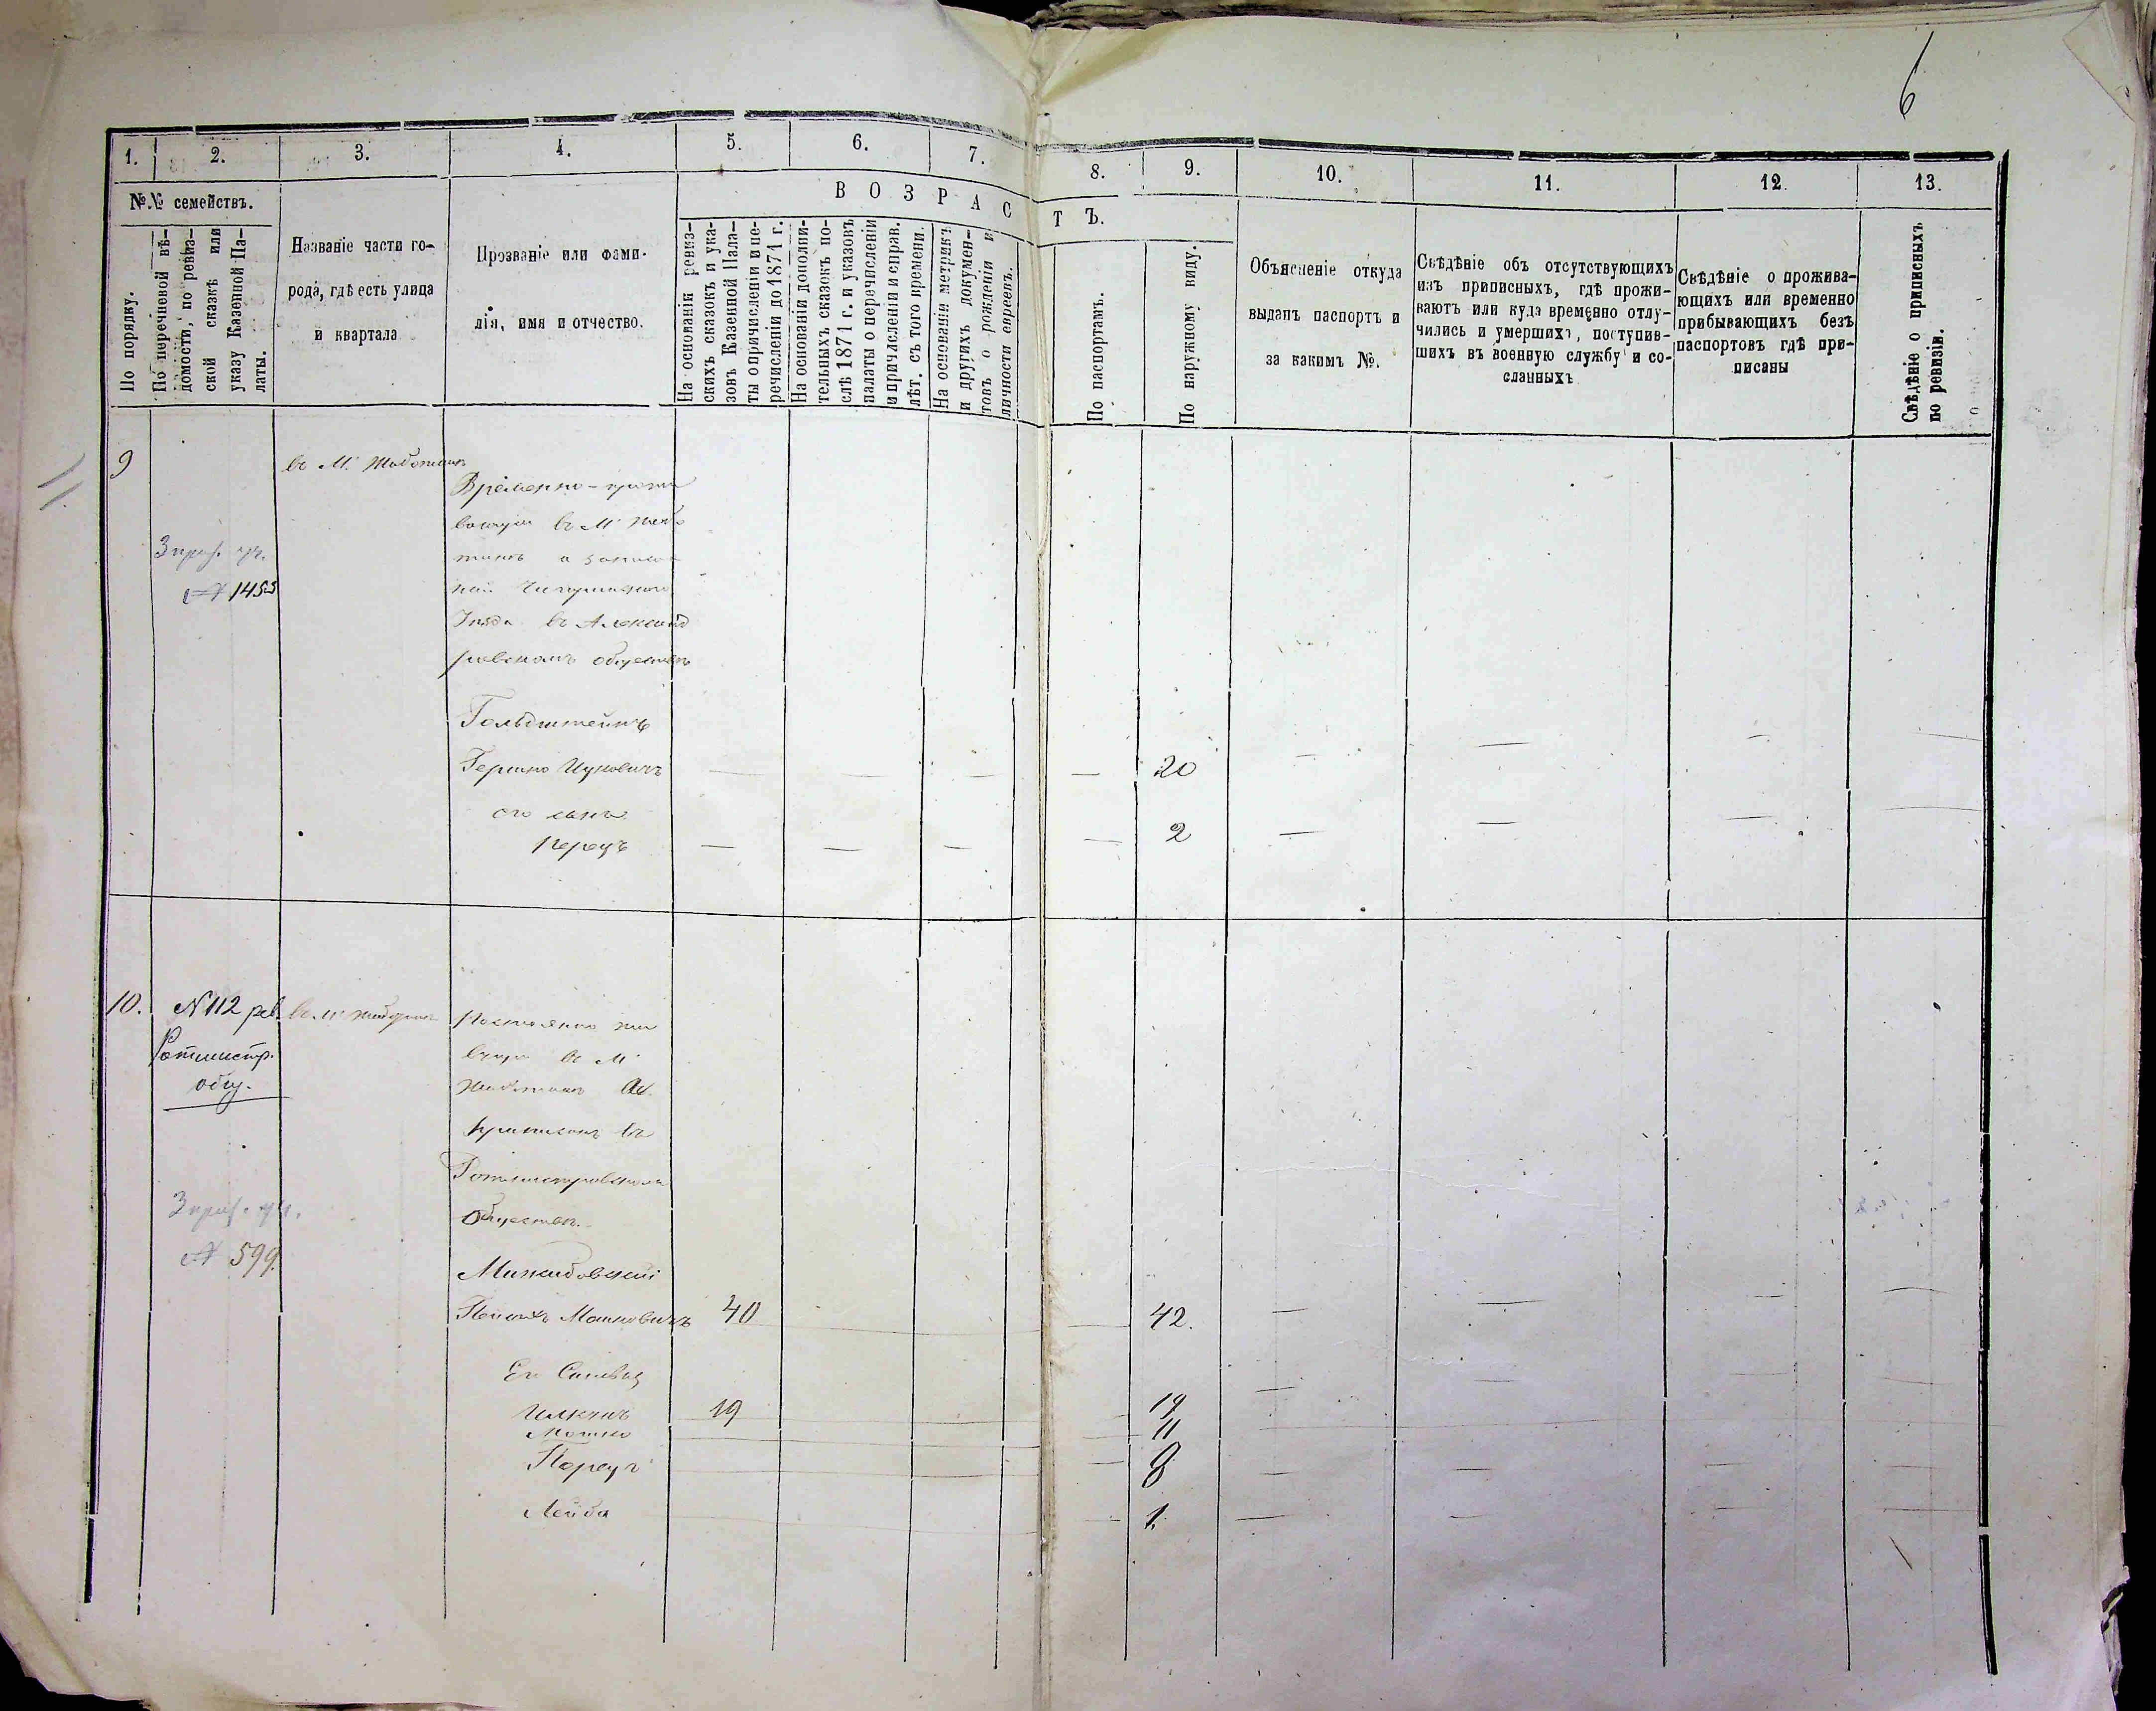 6
1. 2. 3. 4. 5. 6. 7. 8. 9. 10. 11. 12. 13.
№№ семействъ.
По порядку.
По перечневой вѣ-
домости, по ревиз-
ской сказкѣ или
указу Казенной Па-
латы.
Названіе части го-
рода, гдѣ есть улица
и квартала
Прозваніе или фами-
лія, имя и отчество.
ВОЗРАСТЪ.
На основаніи ревиз-
скихъ сказокъ и ука-
зовъ Казенной Пала-
ты о причисленіи и пе-
речисленіи до 1871 г.
На основаніи дополни-
тельныхъ сказокъ по-
слѣ 1871 г. и указовъ
палаты о перечисленіи
и причисленіи и справ.
лѣт. съ того времени.
На основаніи метрикъ
и другихъ докумен-
товъ о рожденіи и
личности евреевъ.
По паспортамъ.
По наружному виду.
Объясненіе откуда
выданъ паспортъ и
за какимъ №.
Свѣдѣніе объ отсутствующихъ
изъ приписныхъ, гдѣ прожи-
ваютъ или куда временно отлу-
чились и умершихъ, поступив-
шихъ въ военную службу и со-
сланныхъ
Свѣдѣніе о прожива-
ющихъ или временно
прибывающихъ безъ
паспортовъ гдѣ при-
писаны
Свѣдѣніе о приписныхъ
по ревизіи.
9
въ М. Жаботинѣ
Временно-прожи
вающій въ М. Жабо
тинѣ а записан
ный Чигиринскаго
Уѣзда въ Александ
ровскомъ обществѣ
3 приз. уч.
№ 1455
Гольдштейнъ
Гершко Ицковичъ — — — — 20 — — — —
его сынъ
Перецъ — — — — 2 — — —
10. № 112 рев. въ м. Жаботинѣ
Ротмистр.
общ.
Постоянно жи
вущій въ М.
Жаботинѣ
приписанъ въ
Ротмистровскомъ
Обществѣ.
3 приз. уч.
№ 599.
Миньковскій
Пейсахъ Мошковичъ 40 — 42. — — — —
Его Сыновья
19 — 19
Мошко — 11
Перецъ — 8 — — — —
Лейба — 1. — — — —